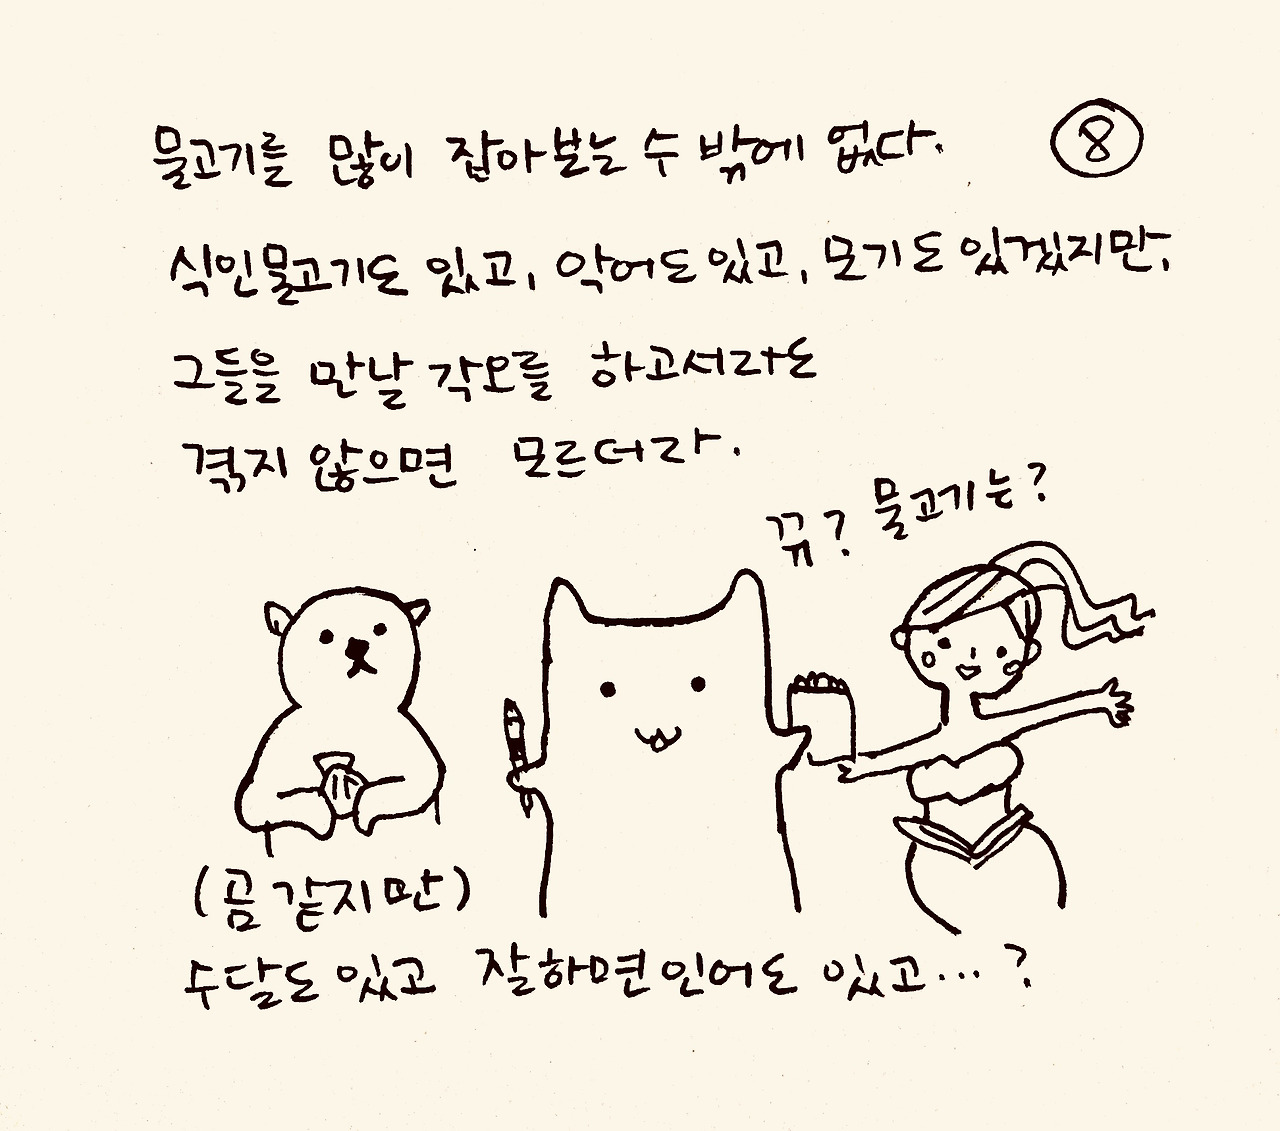 물고기를 많이 잡아보는 수 밖에 없다.
⑧
식인물고기도 있고, 악어도 있고, 모기도 있겠지만,
그들을 만날 각오를 하고서라도
겪지 않으면 모르더라.
뀨? 물고기는?
(곰 같지만)
수달도 있고 잘하면 인어도 있고...?